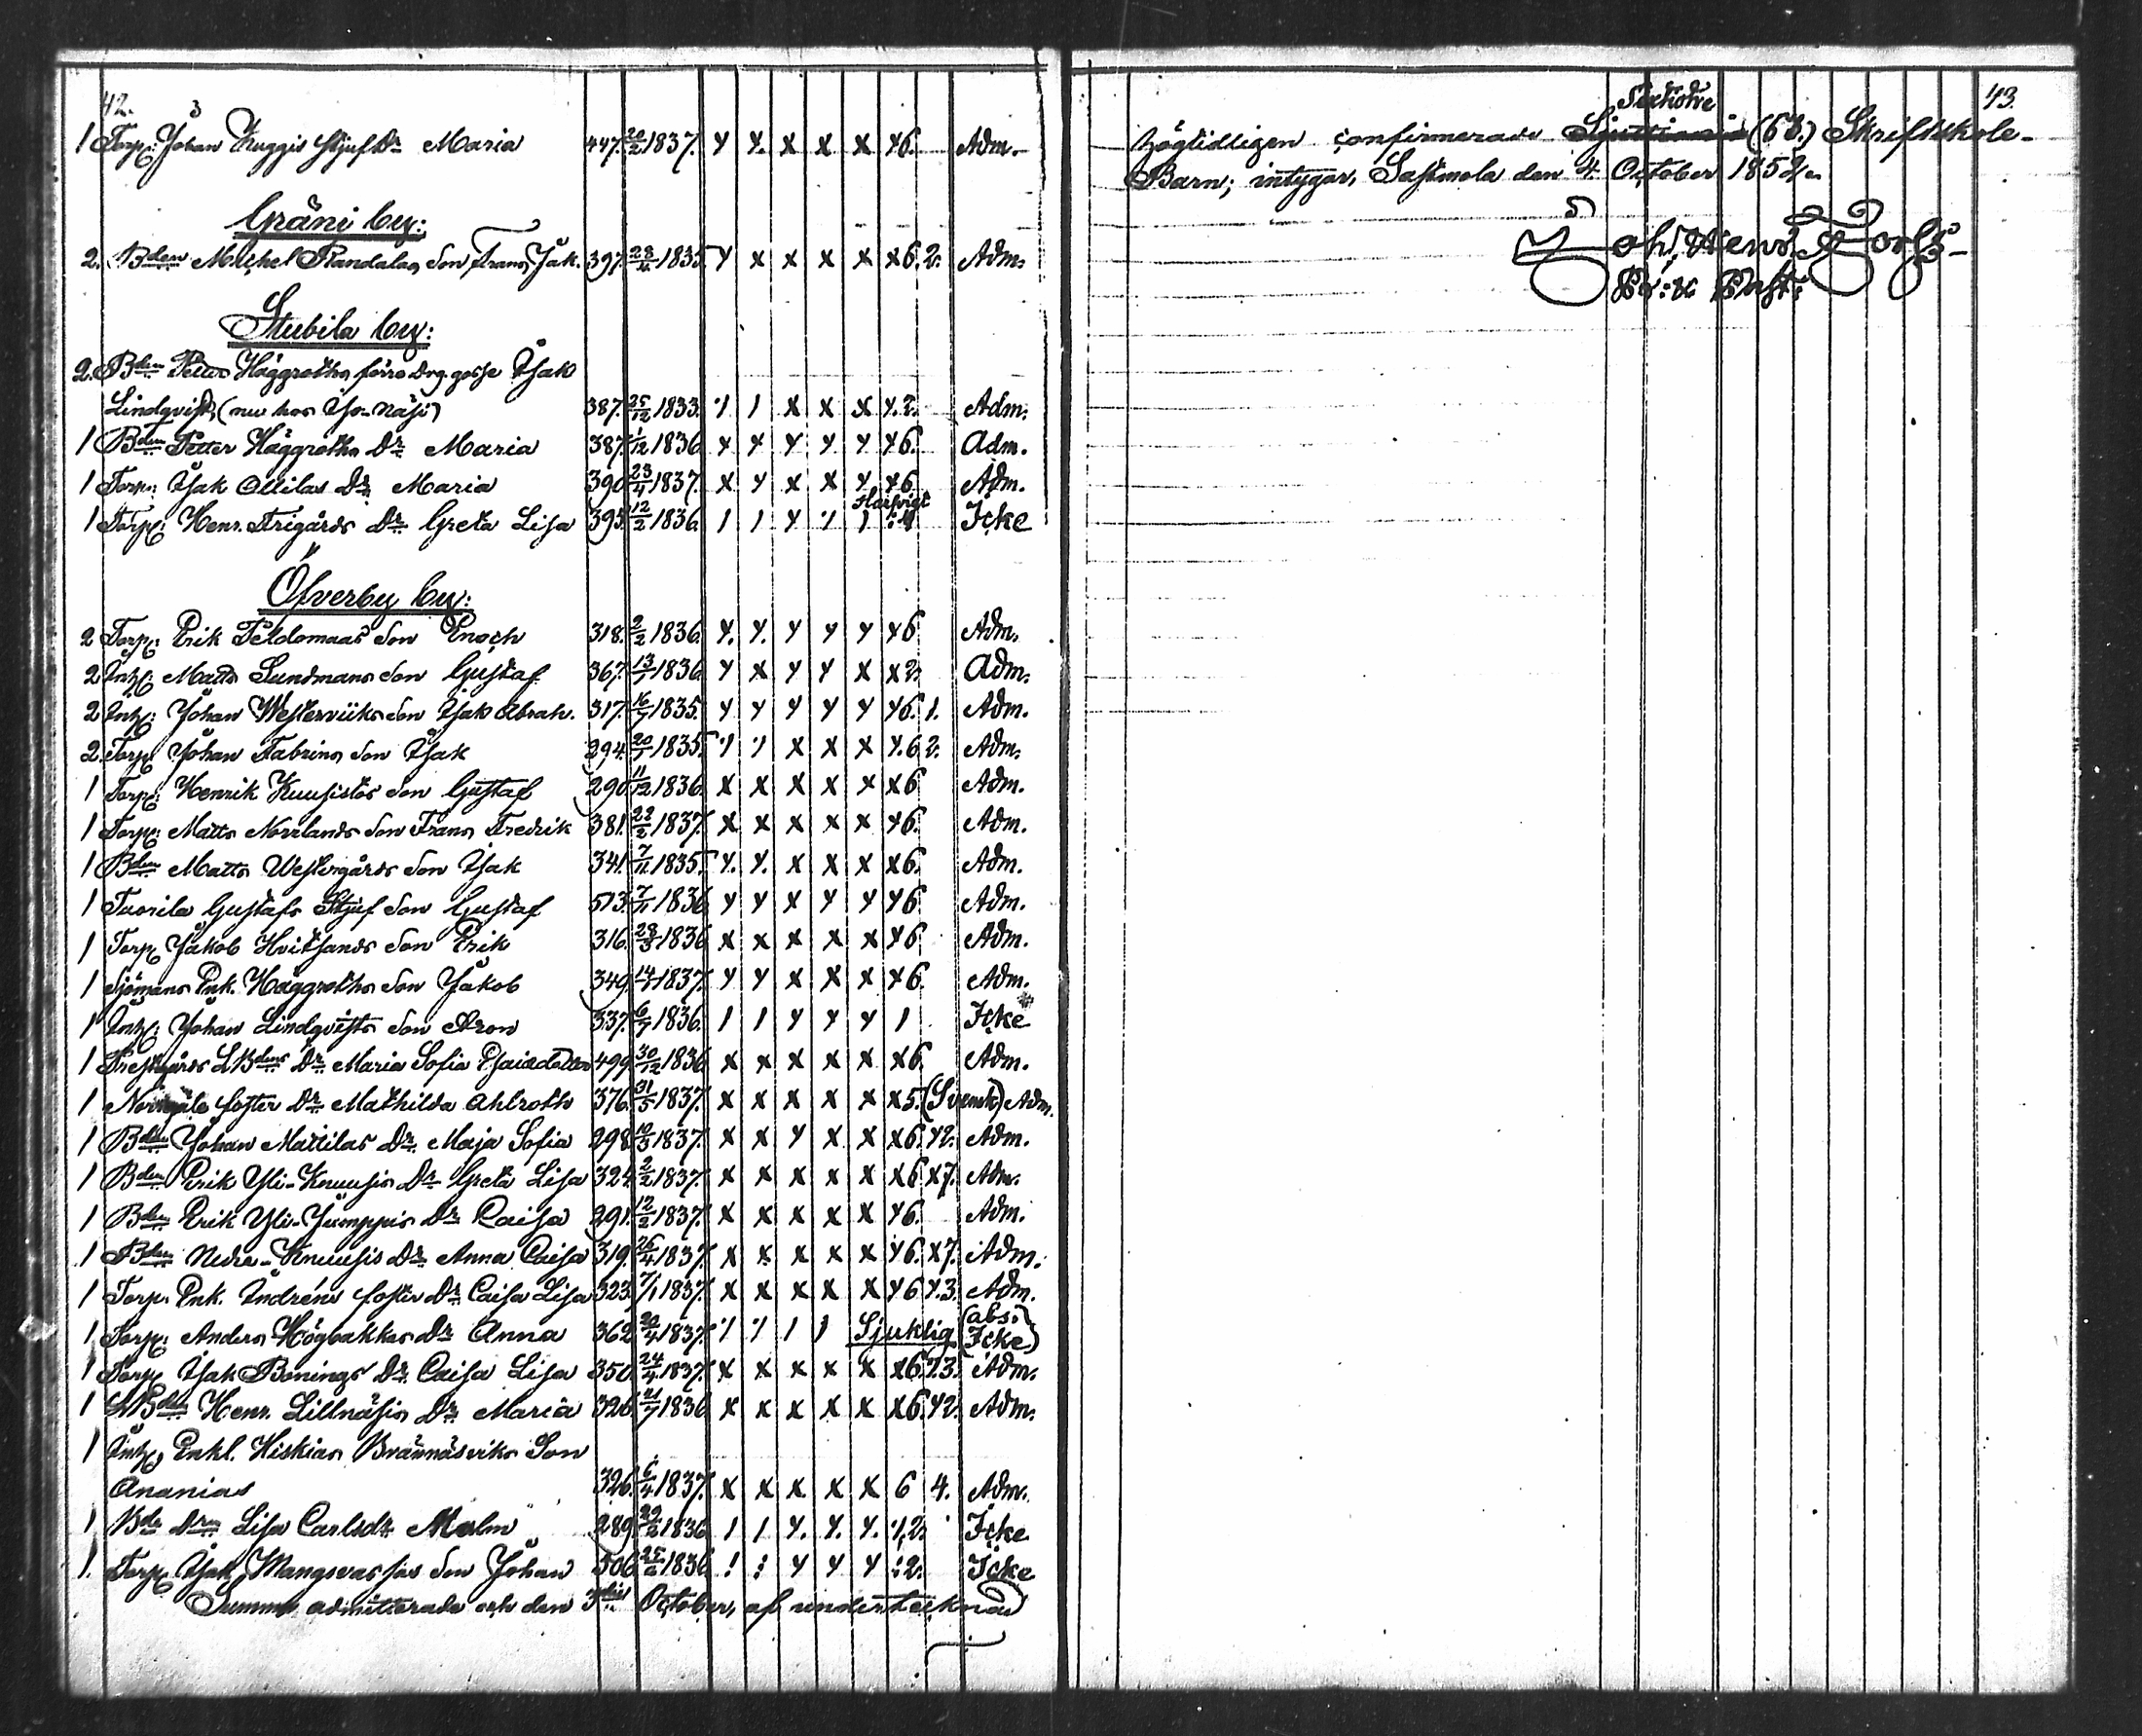 42.
1 Torp: Johan Kuggis Stjuf Dr Maria 447. 20/2 1837. Y Y. X X X Y6. Adm.
Gräni by:
2. Bden Michel Standalas Son Frans Isak. 397. 23/4 1835 Y X X X X X6. 2. Adm.
Stubila by:
2. Bden Petter Häggroths förra drg. gosse Isak
Lindqvist, (nu hos Yo-Näsi) 387. 25/12 1833. 1 1 X X X Y.2. Adm.
1 Bden Petter Häggroths Dr Maria 387. 1/12 1836 Y Y Y Y. Y Y6. Adm.
1 Torp: Isak Ollilas Dr Maria 390. 23/4 1837. X Y X X Y Y6 Adm.
1 Torp: Henr. Frigårds Dr Greta Lisa 395. 12/2 1836. 1 1 Y 1 1 Icke
Öfverby by:
2 Torp: Erik Feldomaas Son Enoch 318. 2/2 1836. Y. Y. Y Y Y Y6 Adm.
2 Inh: Matts Sundmans Son Gustaf 367. 13/7 1836 Y X Y Y X X2. Adm.
2 Inh: Johan Westerviiks Son Isak Abrah. 317. 16/7 1835. Y Y Y Y Y Y6. 1. Adm.
2. Torp: Johan Fabrins Son Isak 294. 20/7 1835. 1 1 X X X Y.6. 2. Adm.
1 Torp: Henrik Kuusistos Son Gustaf 290. 11/12 1836. X X X X X X6 Adm.
1 Torp: Matts Norrlands Son Frans Fredrik 381. 22/2 1837. X X X X X Y6. Adm.
1 Bden Matts Westergårds Son Isak 341. 7/11 1835 Y. Y. X X X X6. Adm.
1 Tuorila Gustafs Stjuf Son Gustaf 513. 7/11 1836 Y Y X Y Y Y6 Adm.
1 Torp. Jakob Hvitsands Son Erik 316. 28/3 1836 X X X X X Y6 Adm.
1 Sjömans Enk. Häggroths Son Jakob 349. 14/7 1837. Y Y X X X Y6. Adm.
1 Inh: Johan Lindqvists Son Aron 337. 6/7 1836. 1 1 Y Y Y 1 Icke
1 Prestgårds LBdens Dr Maria Sofia Esaiædotter 499. 30/12 1836 X X X X X X6. Adm.
1 foster Dr Mathilda Ahlroth 376. 31/5 1837. X X X X X X5. (Svensk) Adm.
1 Bden Johan Mattilas Dr Maja Sofia 298. 10/3 1837. X X Y X X X6. Y2. Adm.
1 Bden Erik Yli-Knuusis Dr Greta Lisa 324. 2/2 1837. X X X X X X6 X7. Adm.
1 Bden Erik Yli-Jumppis Dr Caisa 291. 12/2 1837. X X X X X Y6. Adm.
1 Bden Nedre-Knuusis Dr Anna Caisa 319. 26/4 1837. X X. X X X Y6. X7. Adm.
1 Torp. Enk. Indréns foster Dr Caisa Lisa 323. 7/1 1837. X X X X X Y6 Y.3. Adm.
1. Torp: Anders Högbakkas Dr Anna 362. 20/4 1837. 1 1 1 1 Sjuklig (abs. Icke)
1 Torp. Isak Bonings Dr Caisa Lisa 350. 24/4 1837. X X X X X X6. Y.3. Adm.
1 LBdens Henr. Lillnäsis Dr Maria 326. 21/7 1836 X X X X X X6. Y2. Adm.
1 Inh. Enkl. Hiskias Brännäsviks Son
Ananias 326. 6/4 1837. X X X X X 6 4. Adm.
1. Bde Drn Lisa Carlsdr Malm 289. 29/2 1836 1 1 Y. Y. Y. 1.2. Icke
1. Torp. Isak Mangsvas sos Son Johan 506. 25/6 1836 ! : Y Y Y :2. Icke
Summa admitterade och den 3die October, af undertecknad
43.
högtidligen confirmerade Sextiotre (63.) Skriftskole-
Barn; intygar, Sastmola den 4 October 1852.
Joh. Henr. Forss